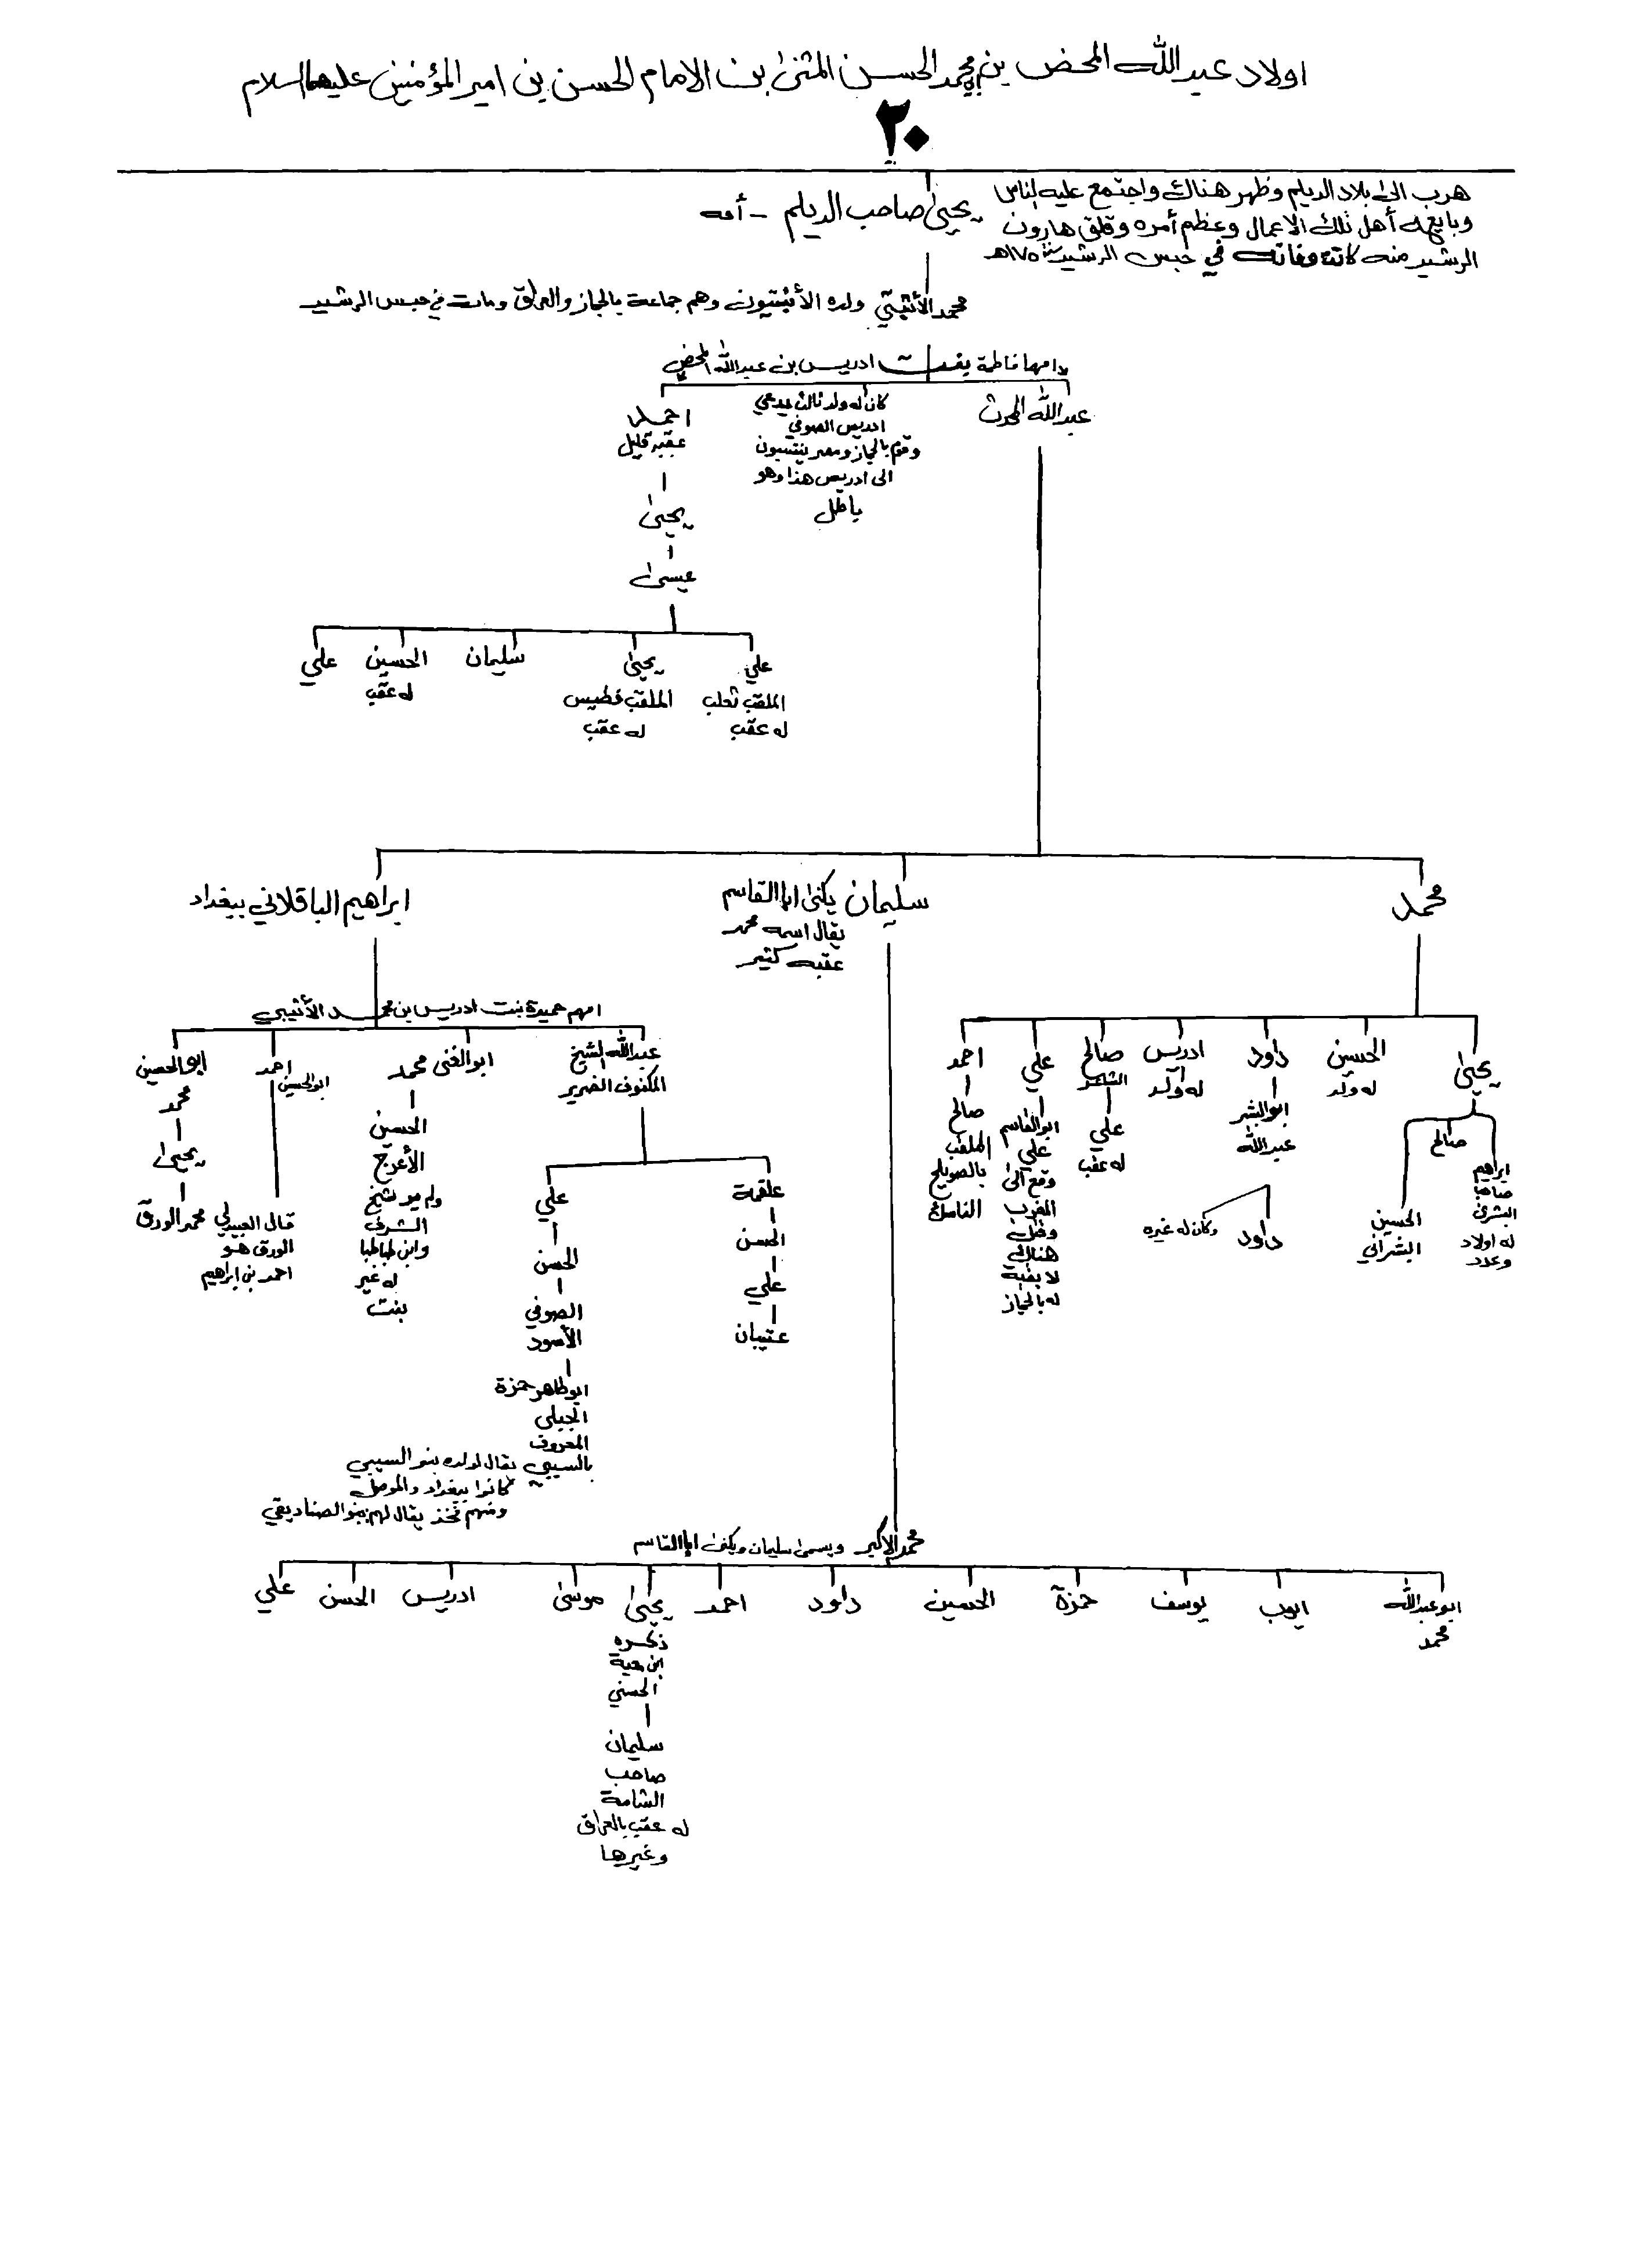 اولاد عبدالله المحض بن الحسن المثنى بن الامام الحسن بن امير المؤمنين عليهما السلام
٢٠
هرب الى بلاد الديلم وظهر هناك واجتمع عليه الناس
وبايعه أهل تلك الاعمال وعظم أمره وقلق هارون
الرشيد منه كانت وفاته في حبس الرشيد سنة ١٧٥هـ
يحيى صاحب الديلم - أمه
محمد الأثيبي ولده الأثيبيون وهم جماعة بالحجاز والعراق ومات في حبس الرشيد
امها فاطمة بنت ادريس بن عبدالله المحض
عبدالله المحدث
كان له ولد ثالث يدعي
ادريس الصوفي
وقوم بالحجاز ومصر ينتسبون
الى ادريس هذا وهو
باطل
احمد
عقبه قليل
يحيى
عيسى
علي
الملقب ثعلب
له عقب
يحيى
الملقب فطيس
له عقب
سليمان
الحسين
له عقب
علي
محمد
سليمان يكنى ابا القاسم
يقال اسمه محمد
عقبه كثير
ابراهيم الباقلاني ببغداد
يحيى
صالح
ابراهيم
صاحب
له اولاد
وعدد
الحسين
البشراني
الحسن
له ولد
داود
ابو البشر
عبدالله
داود
وكان له غيره
ادريس
له ولد
صالح
الشاعر
علي
له عقب
علي
ابوالقاسم
علي
وقع الى
المغرب
هناك
لا بقية
له بالحجاز
احمد
صالح
الملقب
بالصويلح
امهم حميدة بنت ادريس بن محمد الأثيبي
عبدالله الشيخ
المكفوف الضرير
علقمة
الحسن
علي
عتيبان
علي
الحسن
الصوفي
الأسود
ابو طاهر حمزة
الجبلي
المعروف
بالسيبي يقال لولده بنو السيبي
كانوا ببغداد والموصل
ومنهم فخذ يقال لهم بنو الصناديقي
ابوالغنى
محمد
الحسين
الأعرج
الشرف
وابن طباطبا
له غير
بنت
احمد
ابوالحسين
قال العبيدلي
الورق هو
احمد بن ابراهيم
ابوالحسين
محمد
يحيى
محمد الورق
محمد الاكبر ويسمى سليمان ويكنى ابا القاسم
ابوعبدالله
محمد
ايوب
يوسف
حمزة
الحسين
داود
احمد
يحيى
ذكره
الحسني
سليمان
صاحب
الشامة
له عقب بالعراق
وغيرها
موسى
ادريس
الحسن
علي